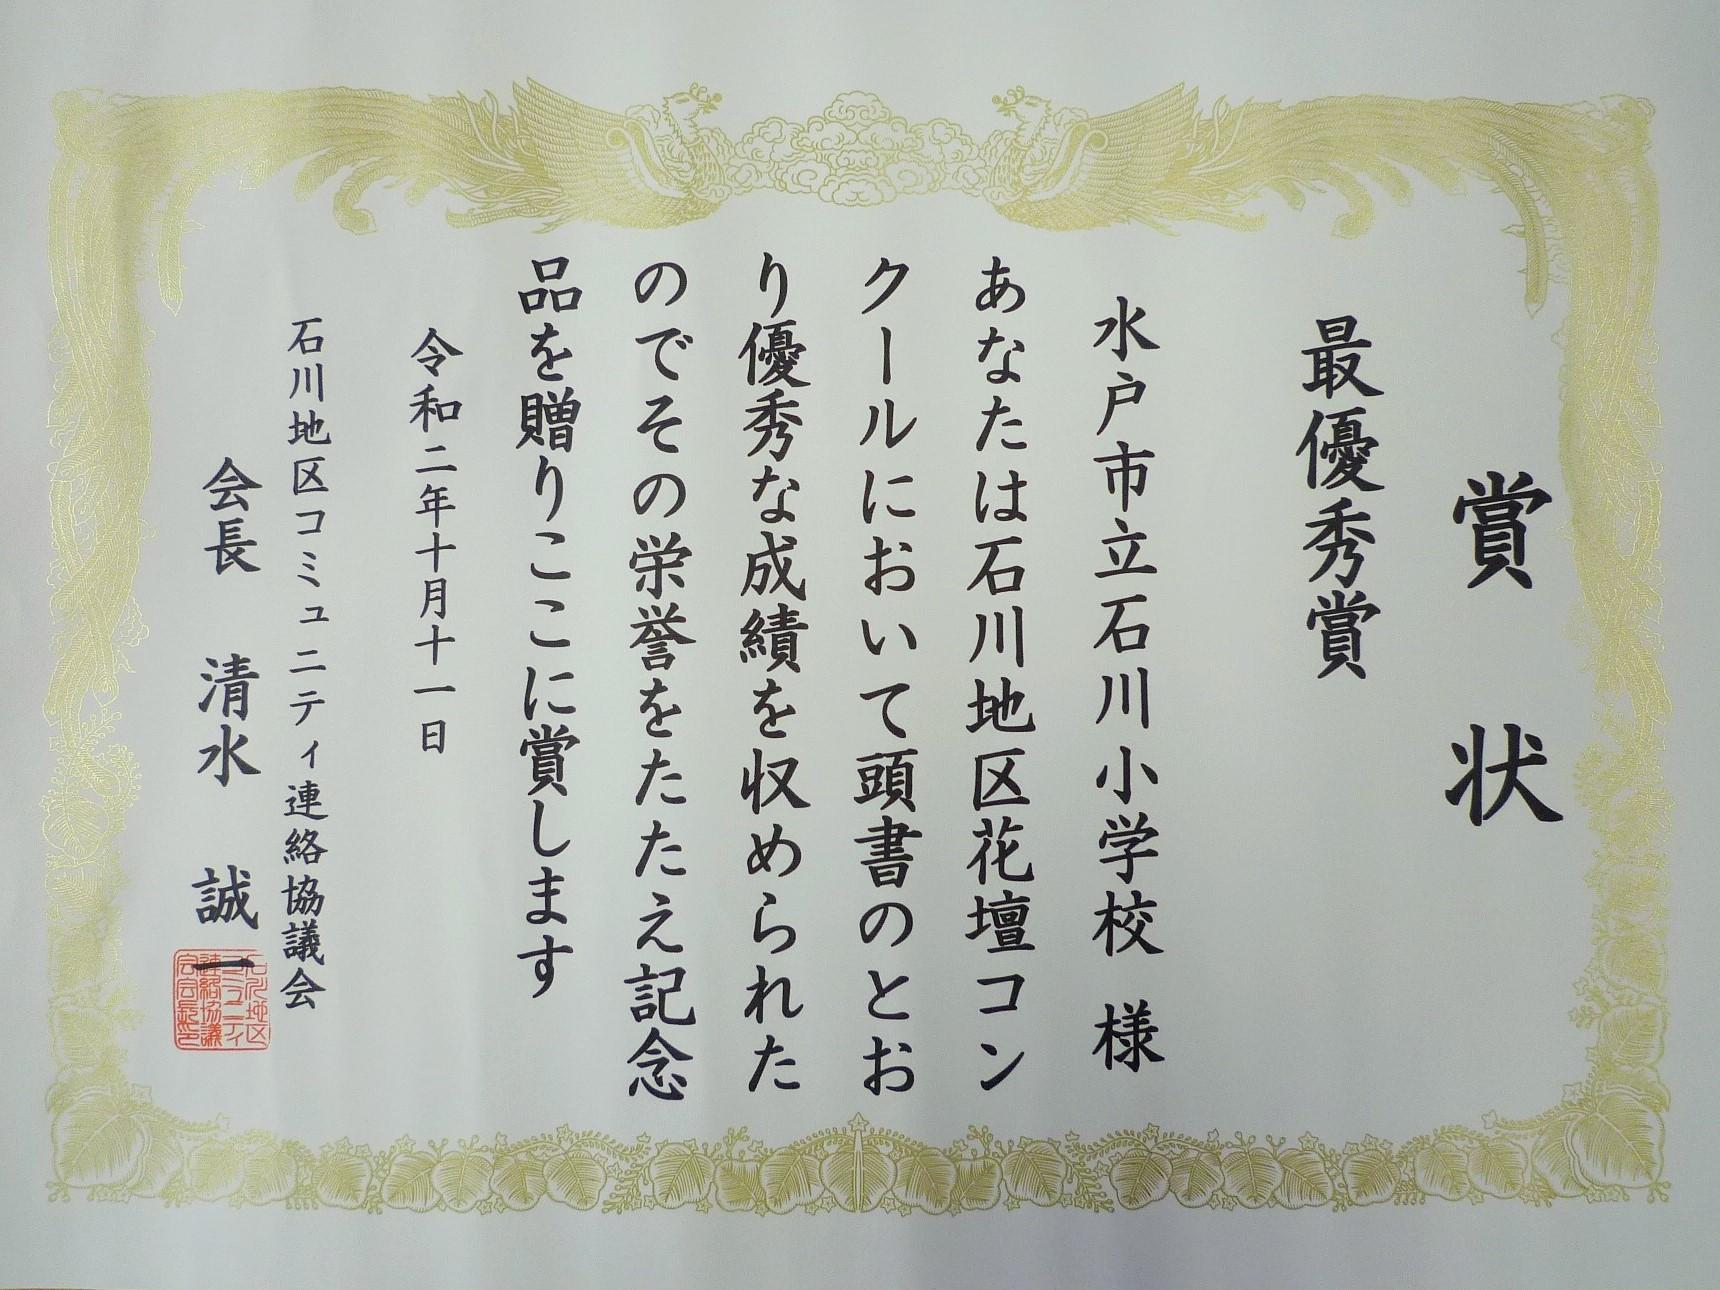 賞状
最優秀賞
水戸市立石川小学校 様
あなたは石川地区花壇コン
クールにおいて頭書のとお
り優秀な成績を収められた
のでその栄誉をたたえ記念
品を贈りここに賞します
令和二年十月十一日
石川地区コミュニティ連絡協議会
会長 清水 誠一
石川地区
コミュニティ
連絡協議
会会長印